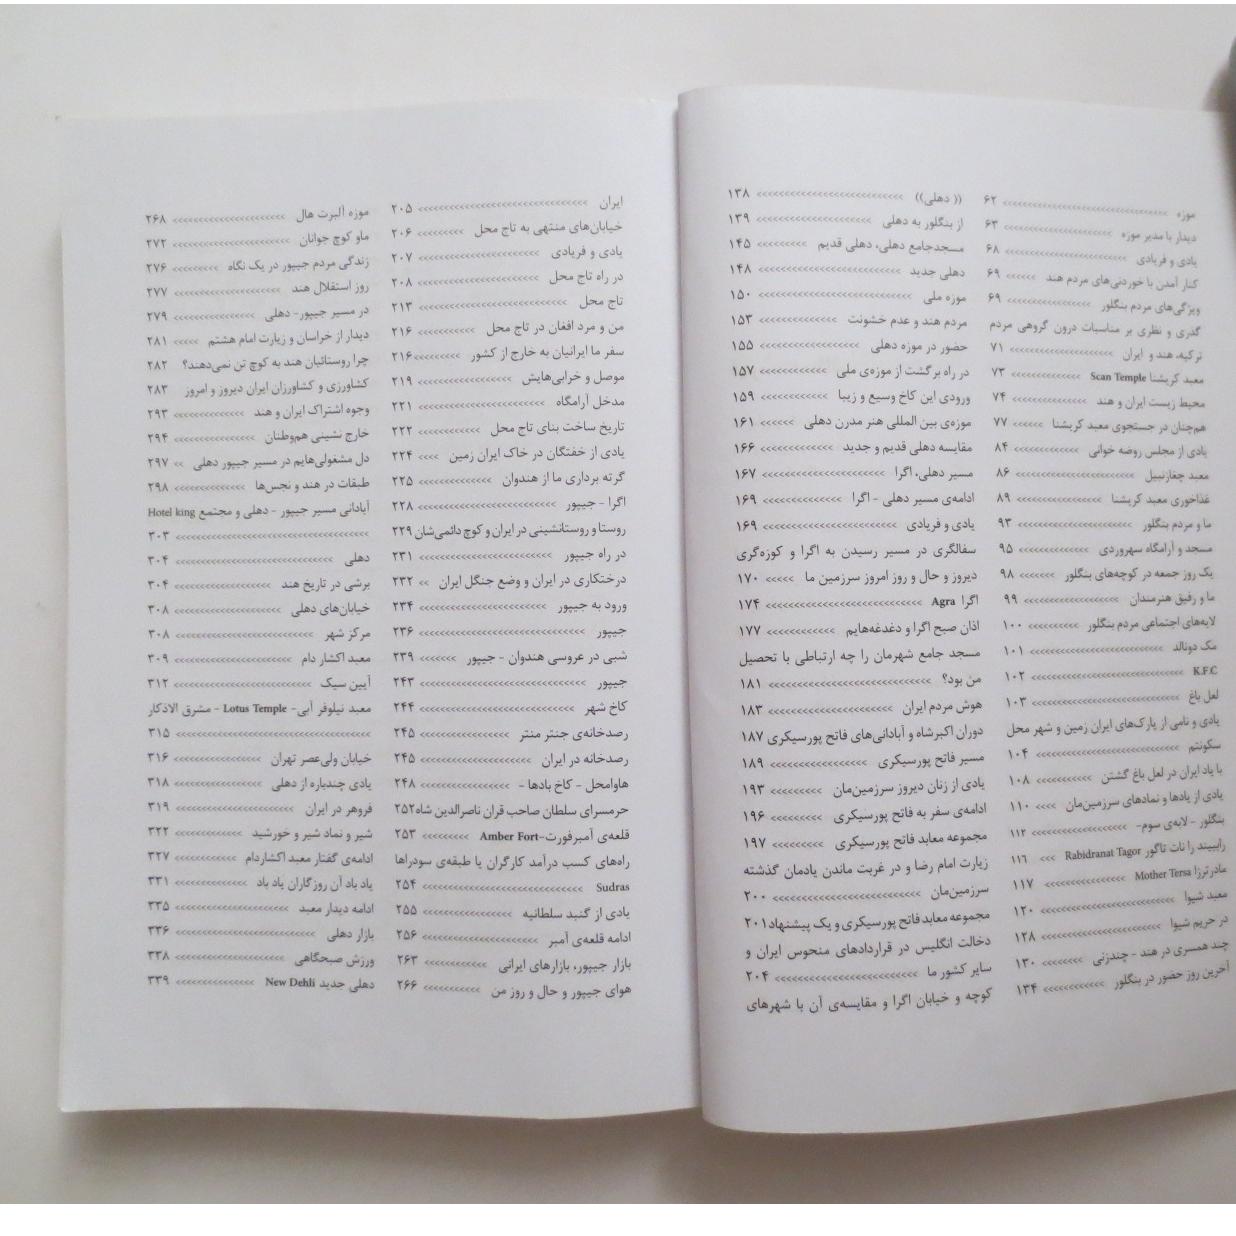 موزه ‹‹‹‹‹‹‹‹‹‹‹‹‹‹‹‹‹‹‹‹ ۶۲
دیدار با مدیر موزه ‹‹‹‹‹‹‹‹‹‹‹‹‹‹‹‹‹‹‹‹ ۶۳
یادی و فریادی ‹‹‹‹‹‹‹‹‹‹‹‹‹‹‹‹‹‹‹‹ ۶۸
کنار آمدن با خوردنی‌های مردم هند ‹‹‹‹‹‹ ۶۹
ویژگی‌های مردم بنگلور ‹‹‹‹‹‹‹‹‹‹‹‹‹‹‹‹ ۶۹
گذری و نظری بر مناسبات درون گروهی مردم
ترکیه، هند و ایران ‹‹‹‹‹‹‹‹‹‹‹‹‹‹‹‹‹‹‹‹ ۷۱
معبد کریشنا Scan Temple ‹‹‹‹‹‹‹‹‹‹‹‹‹‹ ۷۳
محیط زیست ایران و هند ‹‹‹‹‹‹‹‹‹‹‹‹‹‹ ۷۴
هم‌چنان در جستجوی معبد کریشنا ‹‹‹‹‹‹ ۷۷
یادی از مجلس روضه خوانی ‹‹‹‹‹‹‹‹‹‹‹‹ ۸۴
معبد چغازنبیل ‹‹‹‹‹‹‹‹‹‹‹‹‹‹‹‹‹‹‹‹ ۸۶
غذاخوری معبد کریشنا ‹‹‹‹‹‹‹‹‹‹‹‹‹‹‹‹ ۸۹
ما و مردم بنگلور ‹‹‹‹‹‹‹‹‹‹‹‹‹‹‹‹‹‹‹‹ ۹۳
مسجد و آرامگاه سهروردی ‹‹‹‹‹‹‹‹‹‹‹‹‹ ۹۵
یک روز جمعه در کوچه‌های بنگلور ‹‹‹‹‹‹‹ ۹۸
ما و رفیق هنرمندان ‹‹‹‹‹‹‹‹‹‹‹‹‹‹‹‹‹ ۹۹
لایه‌های اجتماعی مردم بنگلور ‹‹‹‹‹‹‹‹‹‹ ۱۰۰
مک دونالد ‹‹‹‹‹‹‹‹‹‹‹‹‹‹‹‹‹‹‹‹‹‹‹‹ ۱۰۱
K.F.C ‹‹‹‹‹‹‹‹‹‹‹‹‹‹‹‹‹‹‹‹‹‹‹‹‹‹‹ ۱۰۲
لعل باغ ‹‹‹‹‹‹‹‹‹‹‹‹‹‹‹‹‹‹‹‹‹‹‹‹‹‹ ۱۰۳
یادی و نامی از پارک‌های ایران زمین و شهر محل
سکونتم ‹‹‹‹‹‹‹‹‹‹‹‹‹‹‹‹‹‹‹‹‹‹‹‹‹‹ ۱۰۴
با یاد ایران در لعل باغ گشتن ‹‹‹‹‹‹‹‹‹‹‹ ۱۰۸
یادی از یادها و نمادهای سرزمین‌مان ‹‹‹‹ ۱۱۰
بنگلور - لایه‌ی سوم- ‹‹‹‹‹‹‹‹‹‹‹‹‹‹‹‹‹ ۱۱۲
رابیند را نات تاگور Rabidranat Tagor ‹‹‹ ۱۱۶
مادرترزا Mother Tersa ‹‹‹‹‹‹‹‹‹‹‹‹‹‹‹‹ ۱۱۷
معبد شیوا ‹‹‹‹‹‹‹‹‹‹‹‹‹‹‹‹‹‹‹‹‹‹‹‹ ۱۲۰
در حریم شیوا ‹‹‹‹‹‹‹‹‹‹‹‹‹‹‹‹‹‹‹‹‹ ۱۲۸
چند همسری در هند - چندزنی ‹‹‹‹‹‹‹‹ ۱۳۰
آخرین روز حضور در بنگلور ‹‹‹‹‹‹‹‹‹‹‹‹ ۱۳۴
(( دهلی)) ‹‹‹‹‹‹‹‹‹‹‹‹‹‹‹‹‹‹‹‹‹‹‹‹‹ ۱۳۸
از بنگلور به دهلی ‹‹‹‹‹‹‹‹‹‹‹‹‹‹‹‹‹‹‹‹ ۱۳۹
مسجدجامع دهلی، دهلی قدیم ‹‹‹‹‹‹‹‹‹ ۱۴۵
دهلی جدید ‹‹‹‹‹‹‹‹‹‹‹‹‹‹‹‹‹‹‹‹‹‹‹‹ ۱۴۸
موزه ملی ‹‹‹‹‹‹‹‹‹‹‹‹‹‹‹‹‹‹‹‹‹‹‹‹‹‹ ۱۵۰
مردم هند و عدم خشونت ‹‹‹‹‹‹‹‹‹‹‹‹‹‹ ۱۵۳
حضور در موزه دهلی ‹‹‹‹‹‹‹‹‹‹‹‹‹‹‹‹‹‹ ۱۵۵
در راه برگشت از موزه‌ی ملی ‹‹‹‹‹‹‹‹‹‹‹‹ ۱۵۷
ورودی این کاخ وسیع و زیبا ‹‹‹‹‹‹‹‹‹‹‹‹ ۱۵۹
موزه‌ی بین المللی هنر مدرن دهلی ‹‹‹‹‹‹ ۱۶۱
مقایسه دهلی قدیم و جدید ‹‹‹‹‹‹‹‹‹‹‹‹ ۱۶۶
مسیر دهلی، اگرا ‹‹‹‹‹‹‹‹‹‹‹‹‹‹‹‹‹‹‹‹ ۱۶۷
ادامه‌ی مسیر دهلی - اگرا ‹‹‹‹‹‹‹‹‹‹‹‹‹‹ ۱۶۹
یادی و فریادی ‹‹‹‹‹‹‹‹‹‹‹‹‹‹‹‹‹‹‹‹‹‹ ۱۶۹
سفالگری در مسیر رسیدن به اگرا و کوزه‌گری
دیروز و حال و روز امروز سرزمین ما ‹‹‹‹‹ ۱۷۰
اگرا Agra ‹‹‹‹‹‹‹‹‹‹‹‹‹‹‹‹‹‹‹‹‹‹‹‹‹‹ ۱۷۴
اذان صبح اگرا و دغدغه‌هایم ‹‹‹‹‹‹‹‹‹‹‹‹ ۱۷۷
مسجد جامع شهرمان را چه ارتباطی با تحصیل
من بود؟ ‹‹‹‹‹‹‹‹‹‹‹‹‹‹‹‹‹‹‹‹‹‹‹‹‹‹‹ ۱۸۱
هوش مردم ایران ‹‹‹‹‹‹‹‹‹‹‹‹‹‹‹‹‹‹‹‹ ۱۸۳
دوران اکبرشاه و آبادانی‌های فاتح پورسیکری ۱۸۷
مسیر فاتح پورسیکری ‹‹‹‹‹‹‹‹‹‹‹‹‹‹‹‹‹ ۱۸۹
یادی از زنان دیروز سرزمین‌مان ‹‹‹‹‹‹‹‹‹ ۱۹۳
ادامه‌ی سفر به فاتح پورسیکری ‹‹‹‹‹‹‹‹‹ ۱۹۶
مجموعه معابد فاتح پورسیکری ‹‹‹‹‹‹‹‹‹ ۱۹۷
زیارت امام رضا و در غربت ماندن یادمان گذشته
سرزمین‌مان ‹‹‹‹‹‹‹‹‹‹‹‹‹‹‹‹‹‹‹‹‹‹‹‹‹ ۲۰۰
مجموعه معابد فاتح پورسیکری و یک پیشنهاد ۲۰۱
دخالت انگلیس در قراردادهای منحوس ایران و
سایر کشور ما ‹‹‹‹‹‹‹‹‹‹‹‹‹‹‹‹‹‹‹‹‹‹‹ ۲۰۴
کوچه و خیابان اگرا و مقایسه‌ی آن با شهرهای
ایران ‹‹‹‹‹‹‹‹‹‹‹‹‹‹‹‹‹‹‹‹‹‹‹‹‹‹‹‹‹ ۲۰۵
خیابان‌های منتهی به تاج محل ‹‹‹‹‹‹‹‹‹ ۲۰۶
یادی و فریادی ‹‹‹‹‹‹‹‹‹‹‹‹‹‹‹‹‹‹‹‹‹‹ ۲۰۷
در راه تاج محل ‹‹‹‹‹‹‹‹‹‹‹‹‹‹‹‹‹‹‹‹‹ ۲۰۸
تاج محل ‹‹‹‹‹‹‹‹‹‹‹‹‹‹‹‹‹‹‹‹‹‹‹‹‹‹ ۲۱۳
من و مرد افغان در تاج محل ‹‹‹‹‹‹‹‹‹‹‹ ۲۱۶
سفر ما ایرانیان به خارج از کشور ‹‹‹‹‹‹‹‹‹۲۱۶
موصل و خرابی‌هایش ‹‹‹‹‹‹‹‹‹‹‹‹‹‹‹‹‹‹ ۲۱۹
مدخل آرامگاه ‹‹‹‹‹‹‹‹‹‹‹‹‹‹‹‹‹‹‹‹‹‹‹ ۲۲۱
تاریخ ساخت بنای تاج محل ‹‹‹‹‹‹‹‹‹‹‹‹ ۲۲۲
یادی از خفتگان در خاک ایران زمین ‹‹‹‹ ۲۲۴
گرته برداری ما از هندوان ‹‹‹‹‹‹‹‹‹‹‹‹‹‹ ۲۲۵
اگرا - جیپور ‹‹‹‹‹‹‹‹‹‹‹‹‹‹‹‹‹‹‹‹‹‹‹‹ ۲۲۸
روستا و روستانشینی در ایران و کوچ دائمی‌شان ۲۲۹
در راه جیپور ‹‹‹‹‹‹‹‹‹‹‹‹‹‹‹‹‹‹‹‹‹‹‹‹ ۲۳۱
درختکاری در ایران و وضع جنگل ایران ‹‹ ۲۳۲
ورود به جیپور ‹‹‹‹‹‹‹‹‹‹‹‹‹‹‹‹‹‹‹‹‹‹‹ ۲۳۴
جیپور ‹‹‹‹‹‹‹‹‹‹‹‹‹‹‹‹‹‹‹‹‹‹‹‹‹‹‹‹ ۲۳۶
شبی در عروسی هندوان - جیپور ‹‹‹‹‹‹‹ ۲۳۹
جیپور ‹‹‹‹‹‹‹‹‹‹‹‹‹‹‹‹‹‹‹‹‹‹‹‹‹‹‹‹ ۲۴۳
کاخ شهر ‹‹‹‹‹‹‹‹‹‹‹‹‹‹‹‹‹‹‹‹‹‹‹‹‹‹ ۲۴۴
رصدخانه‌ی جنتر منتر ‹‹‹‹‹‹‹‹‹‹‹‹‹‹‹‹‹ ۲۴۵
رصدخانه در ایران ‹‹‹‹‹‹‹‹‹‹‹‹‹‹‹‹‹‹‹‹ ۲۴۵
هاوامحل - کاخ بادها - ‹‹‹‹‹‹‹‹‹‹‹‹‹‹‹‹ ۲۴۸
حرمسرای سلطان صاحب قران ناصرالدین شاه۲۵۲
قلعه‌ی آمبرفورت-Amber Fort ‹‹‹‹‹‹‹‹‹ ۲۵۳
راه‌های کسب درآمد کارگران یا طبقه‌ی سودراها
Sudras ‹‹‹‹‹‹‹‹‹‹‹‹‹‹‹‹‹‹‹‹‹‹‹‹‹‹‹ ۲۵۴
یادی از گنبد سلطانیه ‹‹‹‹‹‹‹‹‹‹‹‹‹‹‹‹‹ ۲۵۵
ادامه قلعه‌ی آمبر ‹‹‹‹‹‹‹‹‹‹‹‹‹‹‹‹‹‹‹‹ ۲۵۶
بازار جیپور، بازارهای ایرانی ‹‹‹‹‹‹‹‹‹‹‹‹ ۲۶۳
هوای جیپور و حال و روز من ‹‹‹‹‹‹‹‹‹‹‹ ۲۶۶
موزه آلبرت هال ‹‹‹‹‹‹‹‹‹‹‹‹‹‹‹‹‹‹‹‹‹ ۲۶۸
ماو کوچ جوانان ‹‹‹‹‹‹‹‹‹‹‹‹‹‹‹‹‹‹‹‹‹ ۲۷۲
زندگی مردم جیپور در یک نگاه ‹‹‹‹‹‹‹‹‹ ۲۷۶
روز استقلال هند ‹‹‹‹‹‹‹‹‹‹‹‹‹‹‹‹‹‹‹‹ ۲۷۷
در مسیر جیپور- دهلی ‹‹‹‹‹‹‹‹‹‹‹‹‹‹‹‹ ۲۷۹
دیدار از خراسان و زیارت امام هشتم ‹‹‹‹‹ ۲۸۱
چرا روستائیان هند به کوچ تن نمی‌دهند؟ ۲۸۲
کشاورزی و کشاورزان ایران دیروز و امروز ۲۸۳
وجوه اشتراک ایران و هند ‹‹‹‹‹‹‹‹‹‹‹‹‹‹ ۲۹۳
خارج نشینی هم‌وطنان ‹‹‹‹‹‹‹‹‹‹‹‹‹‹‹‹ ۲۹۴
دل مشغولی‌هایم در مسیر جیپور دهلی ‹‹ ۲۹۷
طبقات در هند و نجس‌ها ‹‹‹‹‹‹‹‹‹‹‹‹‹‹ ۲۹۸
آبادانی مسیر جیپور - دهلی و مجتمع Hotel king
‹‹‹‹‹‹‹‹‹‹‹‹‹‹‹‹‹‹‹‹‹‹‹‹‹‹‹‹‹‹‹‹‹‹ ۳۰۳
دهلی ‹‹‹‹‹‹‹‹‹‹‹‹‹‹‹‹‹‹‹‹‹‹‹‹‹‹‹‹ ۳۰۴
برشی در تاریخ هند ‹‹‹‹‹‹‹‹‹‹‹‹‹‹‹‹‹‹ ۳۰۴
خیابان‌های دهلی ‹‹‹‹‹‹‹‹‹‹‹‹‹‹‹‹‹‹‹‹ ۳۰۸
مرکز شهر ‹‹‹‹‹‹‹‹‹‹‹‹‹‹‹‹‹‹‹‹‹‹‹‹‹ ۳۰۸
معبد اکشار دام ‹‹‹‹‹‹‹‹‹‹‹‹‹‹‹‹‹‹‹‹‹ ۳۰۹
آیین سیک ‹‹‹‹‹‹‹‹‹‹‹‹‹‹‹‹‹‹‹‹‹‹‹‹‹ ۳۱۲
معبد نیلوفر آبی- Lotus Temple - مشرق الاذکار
‹‹‹‹‹‹‹‹‹‹‹‹‹‹‹‹‹‹‹‹‹‹‹‹‹‹‹‹‹‹‹‹‹‹ ۳۱۵
خیابان ولی‌عصر تهران ‹‹‹‹‹‹‹‹‹‹‹‹‹‹‹‹ ۳۱۶
یادی چندباره از دهلی ‹‹‹‹‹‹‹‹‹‹‹‹‹‹‹‹ ۳۱۸
فروهر در ایران ‹‹‹‹‹‹‹‹‹‹‹‹‹‹‹‹‹‹‹‹‹‹ ۳۱۹
شیر و نماد شیر و خورشید ‹‹‹‹‹‹‹‹‹‹‹‹‹ ۳۲۲
ادامه‌ی گفتار معبد اکشاردام ‹‹‹‹‹‹‹‹‹‹‹‹ ۳۲۷
یاد باد آن روزگاران یاد باد ‹‹‹‹‹‹‹‹‹‹‹‹‹‹ ۳۳۱
ادامه دیدار معبد ‹‹‹‹‹‹‹‹‹‹‹‹‹‹‹‹‹‹‹‹‹ ۳۳۵
بازار دهلی ‹‹‹‹‹‹‹‹‹‹‹‹‹‹‹‹‹‹‹‹‹‹‹‹‹ ۳۳۶
ورزش صبحگاهی ‹‹‹‹‹‹‹‹‹‹‹‹‹‹‹‹‹‹‹‹ ۳۳۸
دهلی جدید New Dehli ‹‹‹‹‹‹‹‹‹‹‹‹‹‹ ۳۳۹